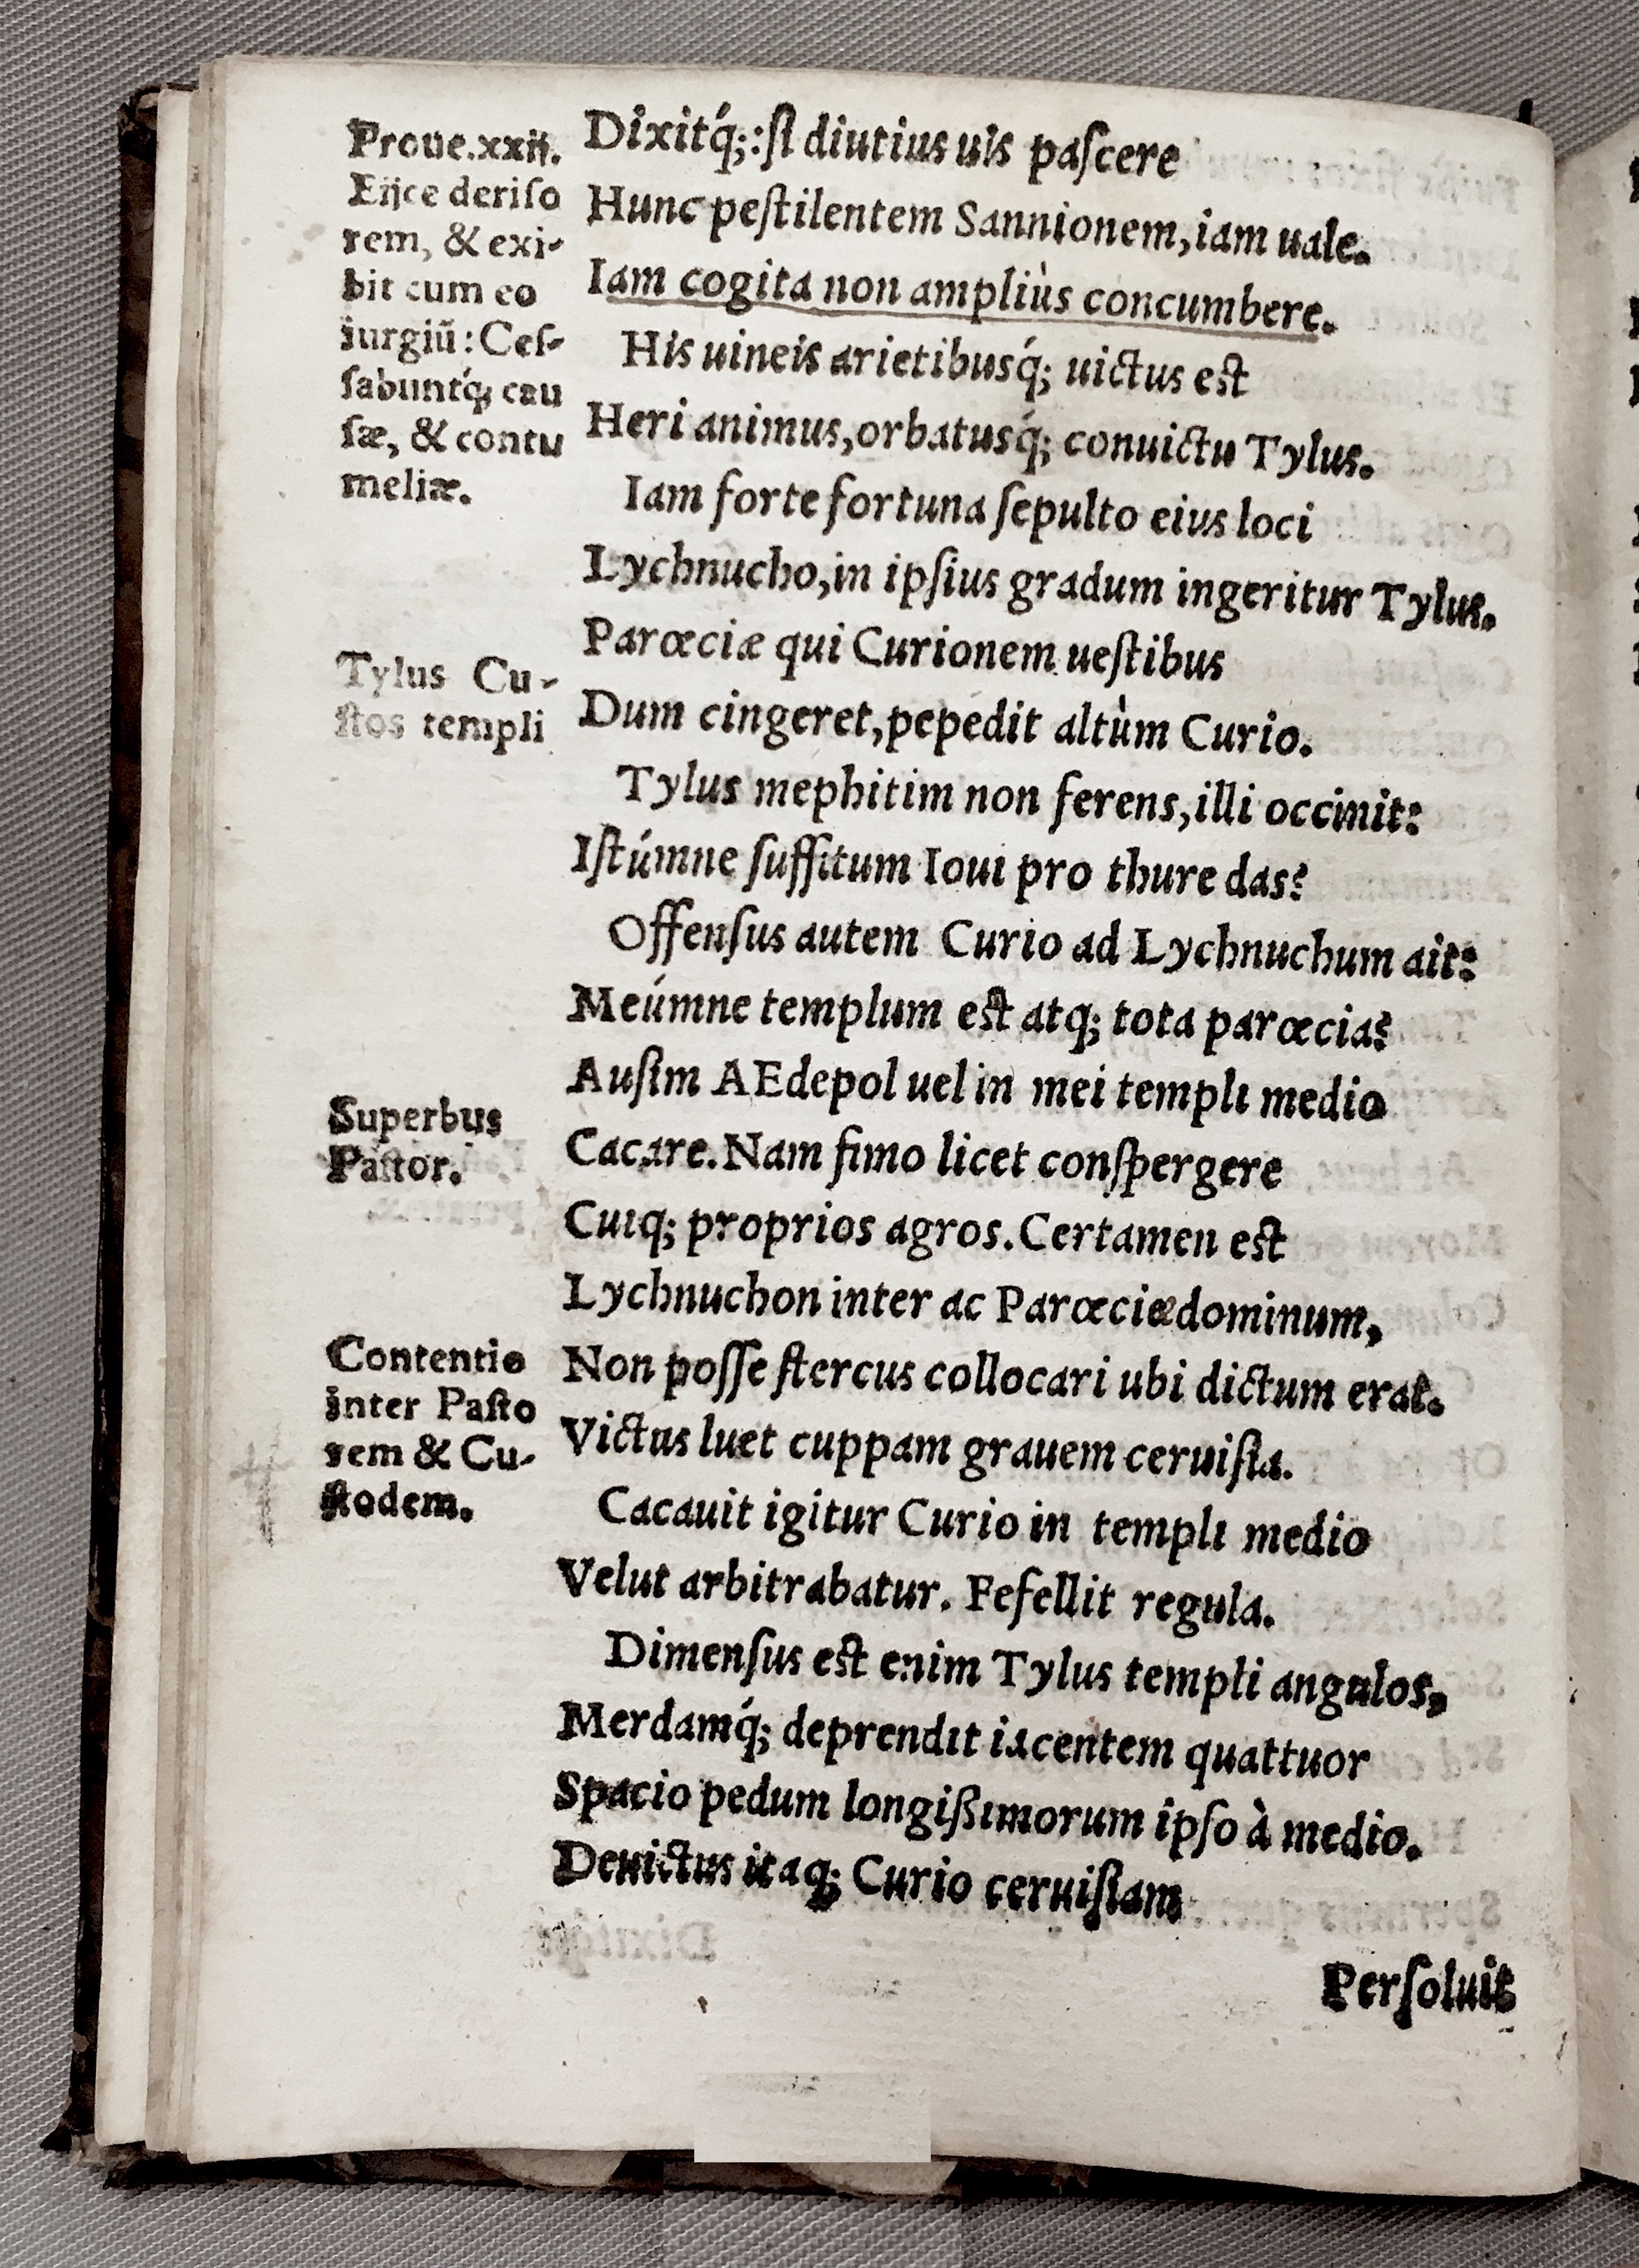 Proue.xxij.
Eijce deriſo
rem, & exi-
bit cum eo
iurgiũ: Ceſ-
ſabuntq́; cau
ſæ, & contu
meliæ.
Tylus Cu-
ſtos templi
Superbus
Paſtor.
Contentio
inter Paſto
rem & Cu-
ſtodem.
Dixitq́;: ſi diutius uis paſcere
Hunc peſtilentem Sannionem, iam uale.
Iam cogita non ampliùs concumbere.
His uineis arietibusq́; uictus est
Heri animus, orbatusq́; conuictu Tylus.
Iam forte fortuna ſepulto eius loci
Lychnucho, in ipſius gradum ingeritur Tylus.
Parœciæ qui Curionem ueſtibus
Dum cingeret, pepedit altùm Curio.
Tylus mephitim non ferens, illi occinit:
Iſtúmne ſuffitum Ioui pro thure das?
Offenſus autem Curio ad Lychnuchum ait:
Meúmne templum est atq; tota parœcia?
Auſim AEdepol uel in mei templi medio
Cacare. Nam fimo licet conſpergere
Cuiq; proprios agros. Certamen est
Lychnuchon inter ac Parœciæ dominum,
Non poſſe ſtercus collocari ubi dictum erat.
Victus luet cuppam grauem ceruiſia.
Cacauit igitur Curio in templi medio
Velut arbitrabatur. Fefellit regula.
Dimenſus est enim Tylus templi angulos,
Merdamq́; deprendit iacentem quattuor
Spacio pedum longißimorum ipſo à medio.
Deuictus itaq; Curio ceruiſiam
Perſoluit